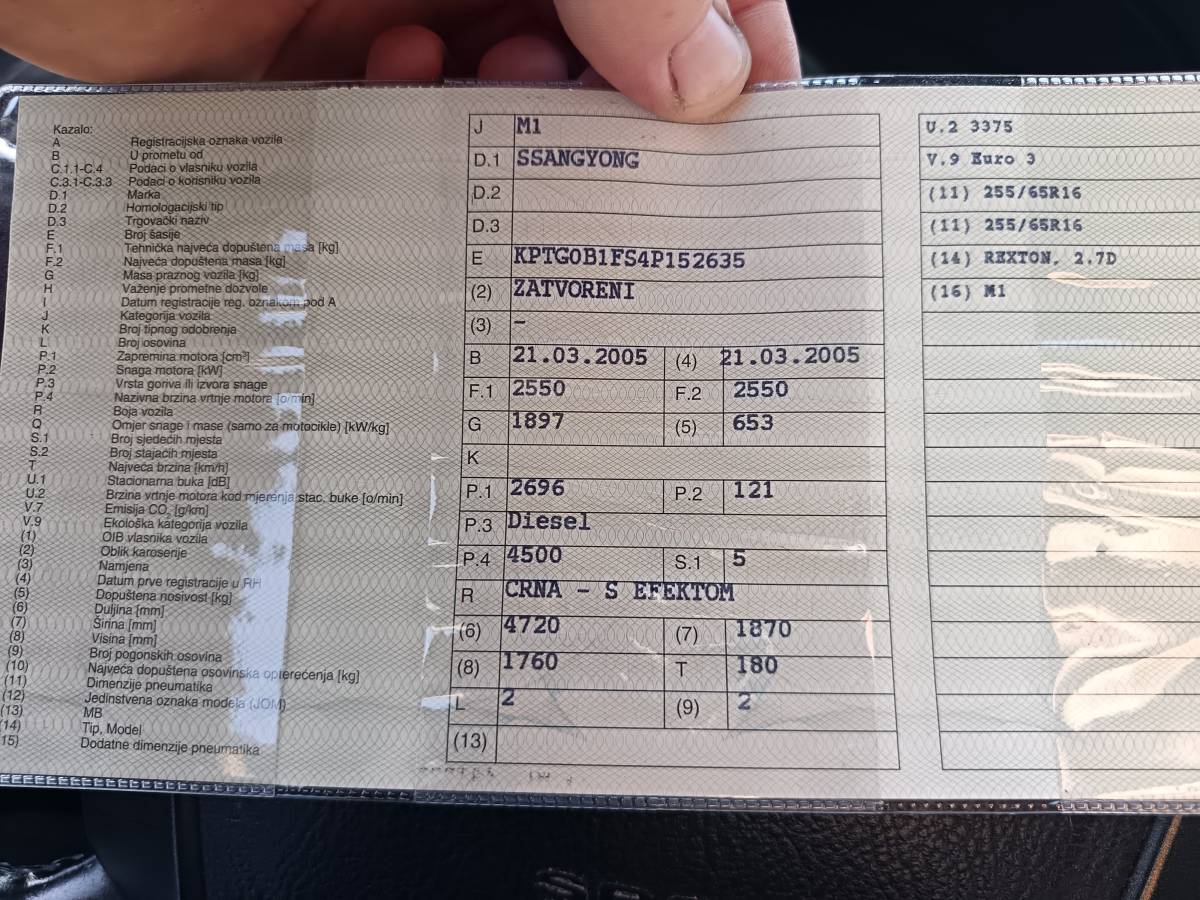 Kazalo:
A Registracijska oznaka vozila
B U prometu od
C.1.1-C.4 Podaci o vlasniku vozila
C.3.1-C.3.3 Podaci o korisniku vozila
D.1 Marka
D.2 Homologacijski tip
D.3 Trgovački naziv
E Broj šasije
F.1 Tehnička najveća dopuštena masa [kg]
F.2 Najveća dopuštena masa [kg]
G Masa praznog vozila [kg]
H Važenje prometne dozvole
I Datum registracije reg. oznakom pod A
J Kategorija vozila
K Broj tipnog odobrenja
L Broj osovina
P.1 Zapremina motora [cm³]
P.2 Snaga motora [kW]
P.3 Vrsta goriva ili izvora snage
P.4 Nazivna brzina vrtnje motora [o/min]
R Boja vozila
Q Omjer snage i mase (samo za motocikle) [kW/kg]
S.1 Broj sjedećih mjesta
S.2 Broj stajaćih mjesta
T Najveća brzina [km/h]
U.1 Stacionarna buka [dB]
U.2 Brzina vrtnje motora kod mjerenja stac. buke [o/min]
V.7 Emisija CO₂ [g/km]
V.9 Ekološka kategorija vozila
(1) OIB vlasnika vozila
(2) Oblik karoserije
(3) Namjena
(4) Datum prve registracije u RH
(5) Dopuštena nosivost [kg]
(6) Duljina [mm]
(7) Širina [mm]
(8) Visina [mm]
(9) Broj pogonskih osovina
(10) Najveća dopuštena osovinska opterećenja [kg]
(11) Dimenzije pneumatika
(12) Jedinstvena oznaka modela (JOM)
(13) MB
(14) Tip, Model
15) Dodatne dimenzije pneumatika
J M1
D.1 SSANGYONG
D.2
D.3
E KPTG0B1FS4P152635
(2) ZATVORENI
(3) -
B 21.03.2005 (4) 21.03.2005
F.1 2550 F.2 2550
G 1897 (5) 653
K
P.1 2696 P.2 121
P.3 Diesel
P.4 4500 S.1 5
R CRNA - S EFEKTOM
(6) 4720 (7) 1870
(8) 1760 T 180
L 2 (9) 2
(13)
U.2 3375
V.9 Euro 3
(11) 255/65R16
(11) 255/65R16
(14) REXTON, 2.7D
(16) M1